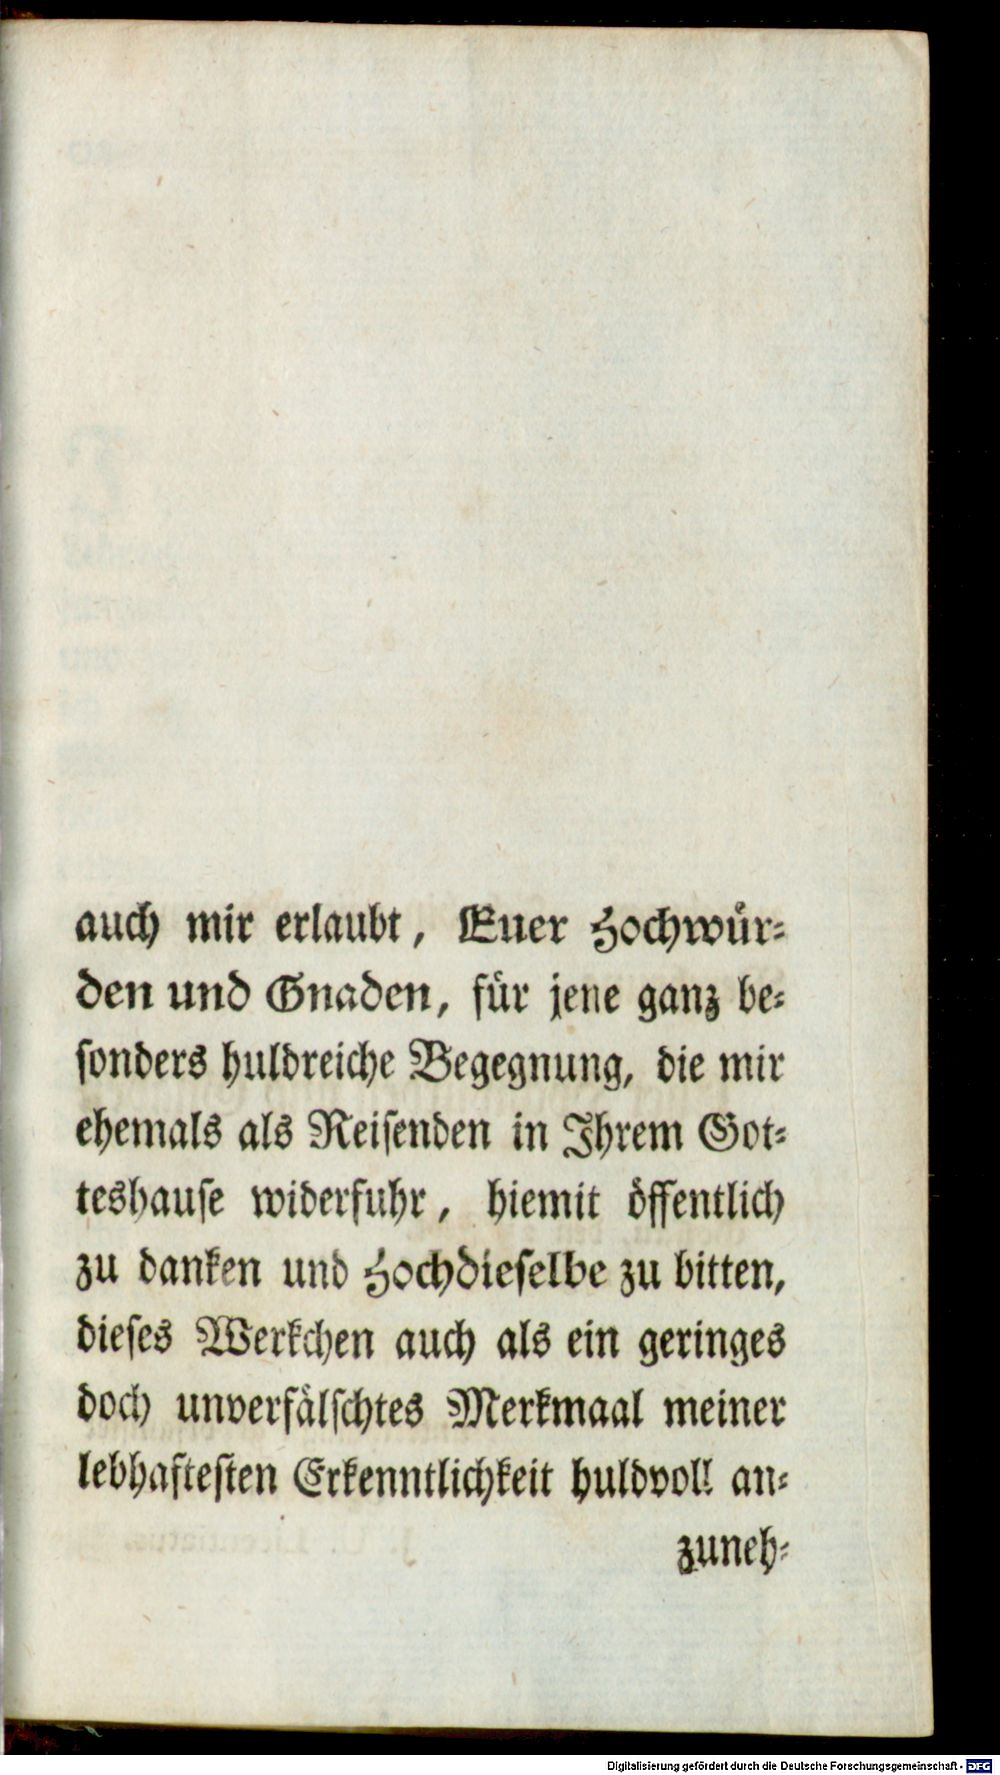 auch mir erlaubt, Euer Hochwür-
den und Gnaden, für jene ganz be-
sonders huldreiche Begegnung, die mir
ehemals als Reisenden in Ihrem Got-
teshause widerfuhr, hiemit öffentlich
zu danken und Hochdieselbe zu bitten,
dieses Werkchen auch als ein geringes
doch unverfälschtes Merkmaal meiner
lebhaftesten Erkenntlichkeit huldvoll an-
zuneh-
Digitalisierung gefördert durch die Deutsche Forschungsgemeinschaft - DFG